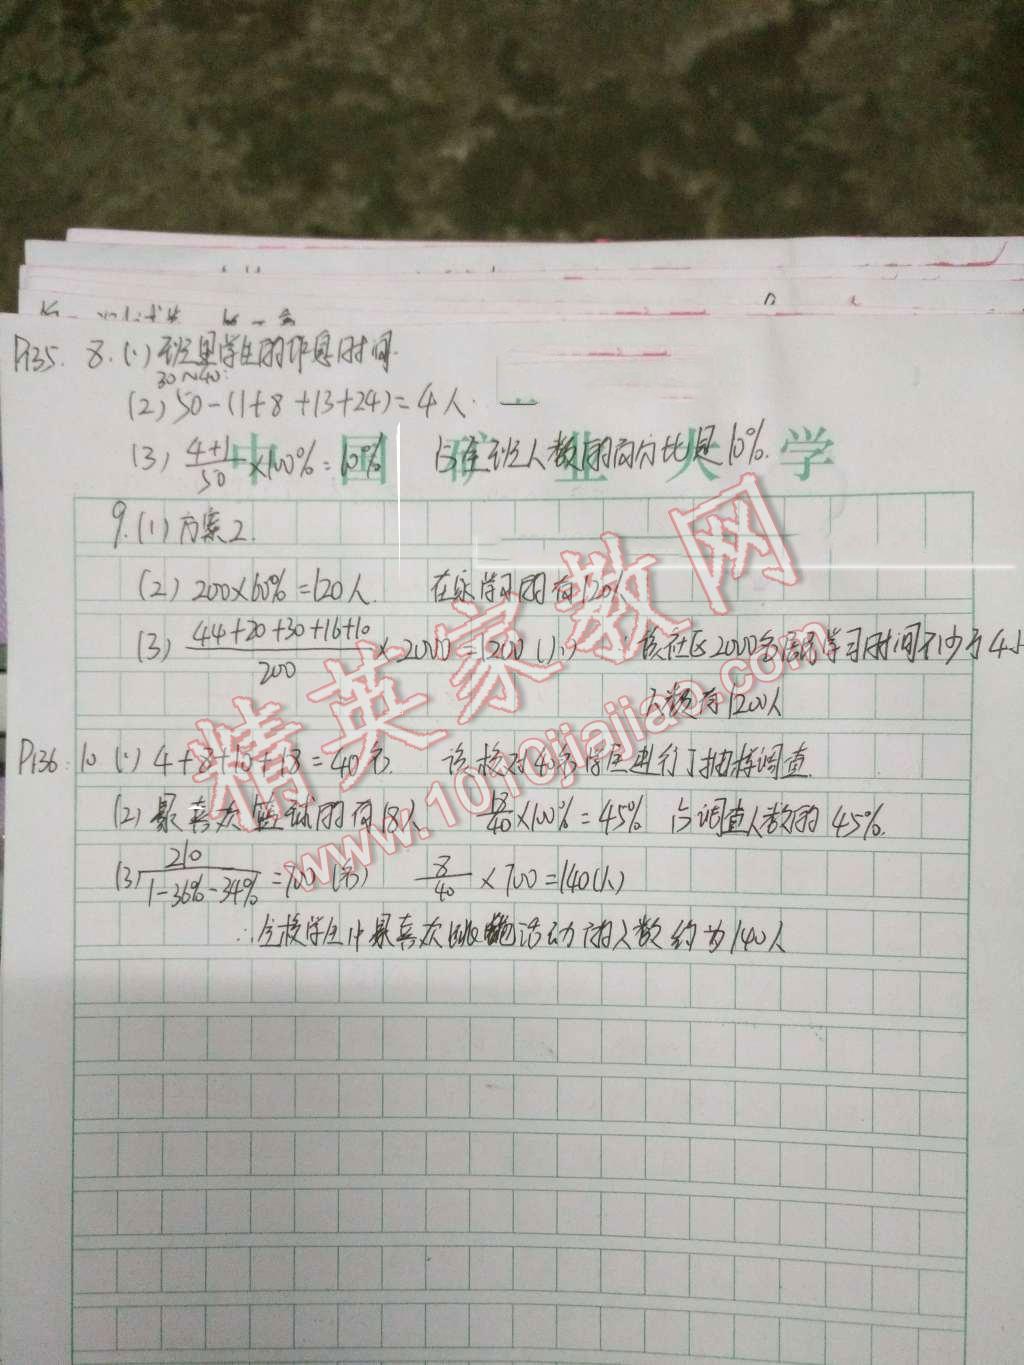 P135. 8. (1) 班里学生的作息时间.
30~40:
(2) 50-(1+8+13+24)=4人.
(3) 4+1/50 ×100%=10% 占全班人数的百分比是10%.
中国矿业大学
9. (1) 方案2.
(2) 200×60%=120人. 在家学习的有120人
(3) 44+20+30+16+10/200 ×2000=1200(人) ∴该社区2000名居民学习时间不少于4小
人数有1200人
P136: 10 (1) 4+8+10+18=40名. 该校对40名学生进行了抽样调查.
(2) 最喜欢篮球的有18人 18/40 ×100%=45% 占调查人数的45%.
(3) 210/1-36%-34% =700(名) 8/40 ×700=140(人)
∴全校学生中最喜欢跳绳活动的人数约为140人
精英家教网
www.1010jiajiao.com